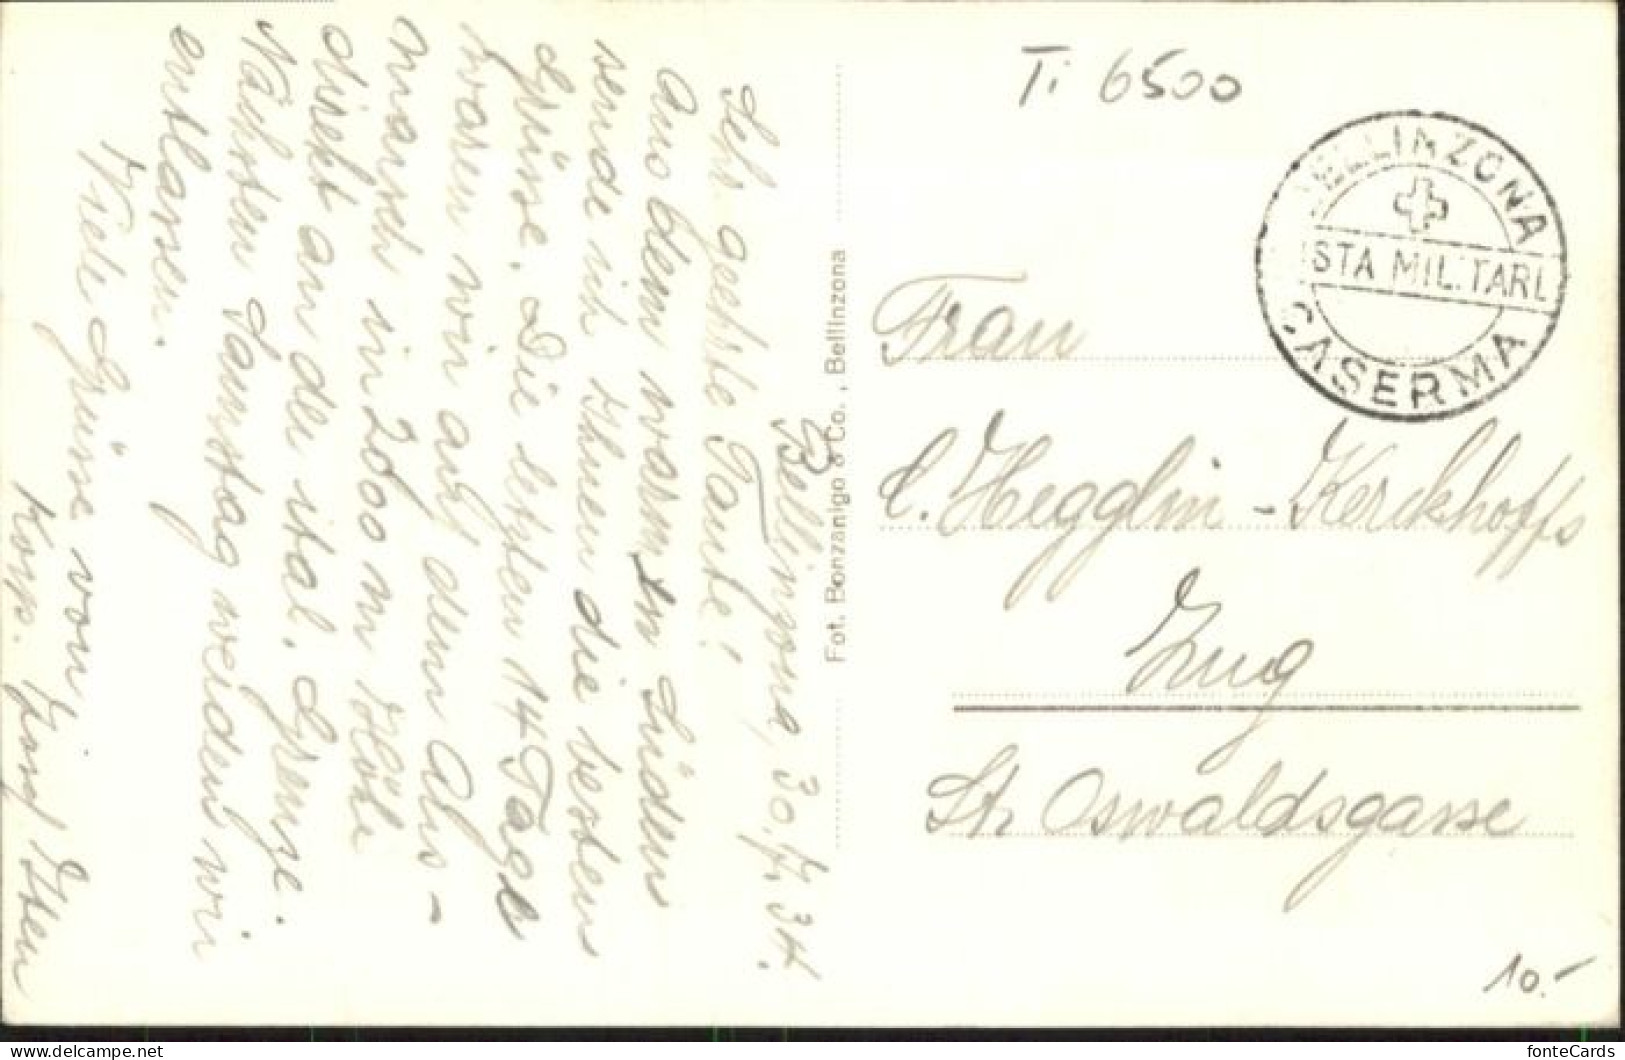 Bellinzona, 30.7.34.
Sehr geehrte Tante!
Aus dem warmen Süden
sende ich Ihnen die besten
Grüsse. Die letzten 14 Tage
waren wir auf dem Aus-
marsch in 2000 m Höhe
direkt an de ital. Grenze.
Nächsten Samstag werden wir
entlassen.
Viele Grüsse von
Korp. Josef Iten
Fot. Bonzanigo & Co., Bellinzona
Ti 6500
BELLINZONA
STA MILITARE
CASERMA
Frau
C. Hegglin - Kerckhoffs
Zug
St. Oswaldsgasse
10.-
delcampe.net
fonteCards